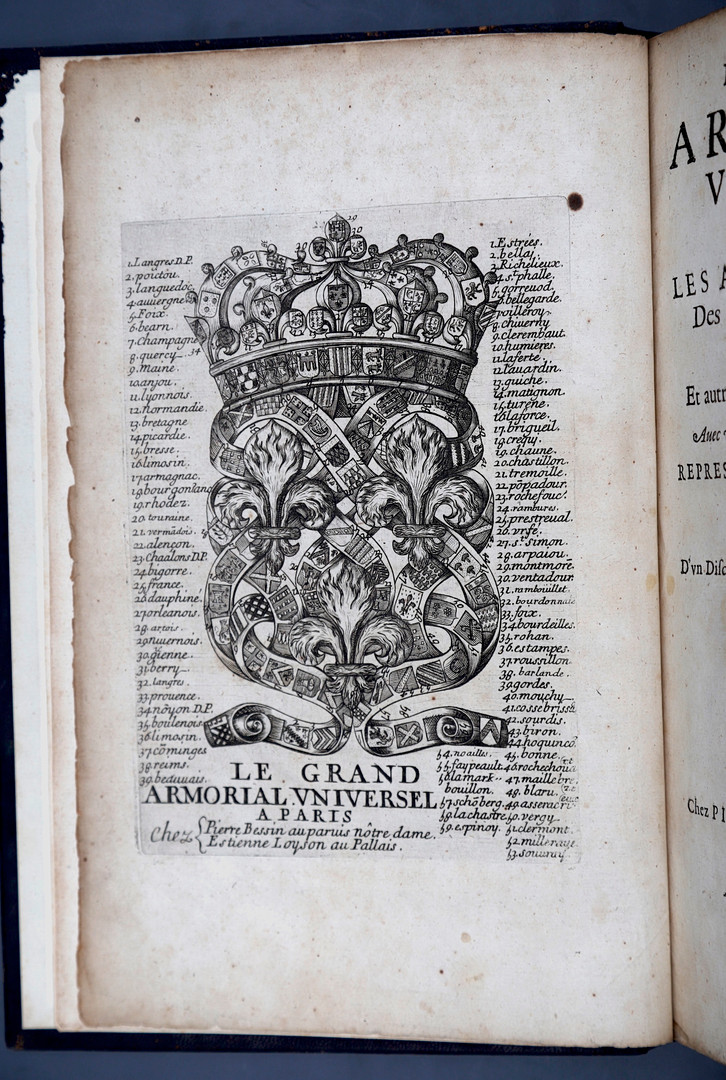 1.Langres D.P.
2.poictou.
3.languedoc.
4.auuergne
5.Foix.
6.bearn.
7.Champagne
8.quercy
9.Maine.
10.anjou.
11.lyonnois.
12.normandie.
13.bretagne
14.picardie.
15.bresse.
16.limosin.
17.armagnac.
18.bourgongne
19.rhodez.
20.touraine.
21.vermãdois.
22.alençon.
23.Chaalons D.P.
24.bigorre.
25.france.
26.dauphine.
27.orleanois.
28.artois.
29.niuernois.
30.güenne.
31.berry.
32.langres.
33.prouence.
34.nõyon D.P.
35.boulenois
36.limosin.
37.cõminges
38.reims.
39.beauuais.
1.Estrées.
2.bellay.
3.Richelieux.
4.st.phalle.
5.gorreuod.
6.bellegarde.
7.villeroy.
8.chiuerny
9.clerembaut.
10.humieres.
11.laferte.
12.lauardin.
13.guiche.
14.matignon.
15.turēne.
16.laforce.
17.brigueil.
18.creqy.
19.chaune.
20.chastillon.
21.tremoille.
22.põpadour.
23.rochefouc.
24.rambures.
25.prestreual.
26.vrfé.
27.st.simon.
28.arpaiou.
29.montmore.
30.ventadour.
31.rambouillet.
32.bourdonnai
33.foix.
34.bourdeilles.
35.rohan.
36.estampes.
37.roussillon.
38.barlande.
39.gordes.
40.mouchy
41.cossebrissa
42.sourdis.
43.biron.
44.hoquinco.
45.bonne.
46.rochechoua
47.maillebre.
48.blaru.
49.asserac
50.vergy.
51.clermont.
52.milleraye.
53.souuray
54.noailles.
55.faypeault.
56.lamark
bouillon.
57.schõberg.
58.lachastre
59.espinoy.
LE GRAND
ARMORIAL VNIVERSEL
A PARIS
Chez { Pierre Bessin au paruis nôtre dame.
Estienne Loyson au Pallais.
AR
V
LES A
Des
Et autr
Avec
REPRES
D'vn Disc
Chez P I